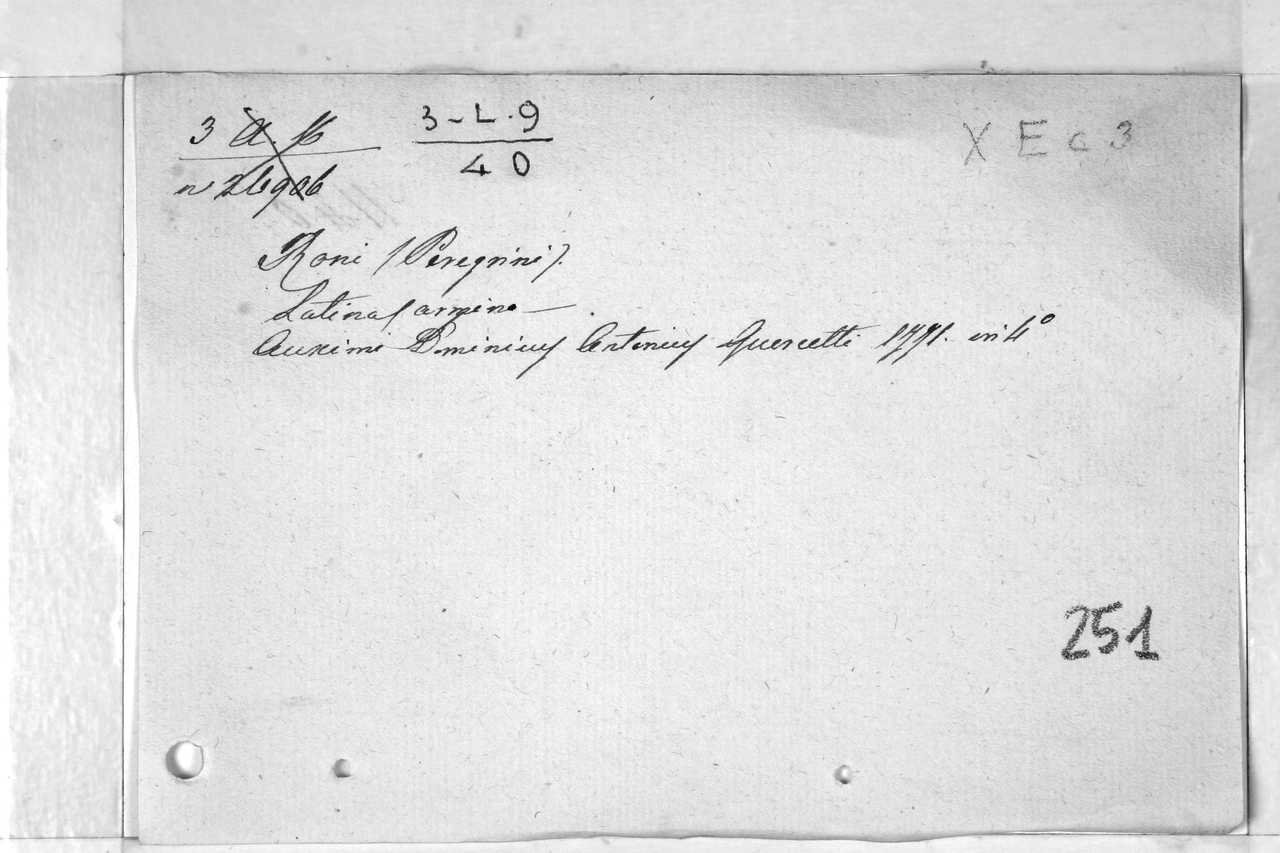 3 A. 16
n 26906
3-L.9
40
X E c 3
Roni (Peregrini).
Latina Carmina —
Auximi Dominicus Antonius Quercetti 1791. in 4°
251